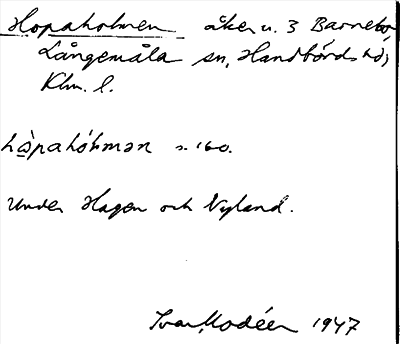 Hopaholmen åker u. 3 Barnebo,
Långemåla sn, Handbörds hd,
Klm. l.
hòpahól̀mən s. 160.
Under Hagen och Nyland.
Ivar Modéer 1947